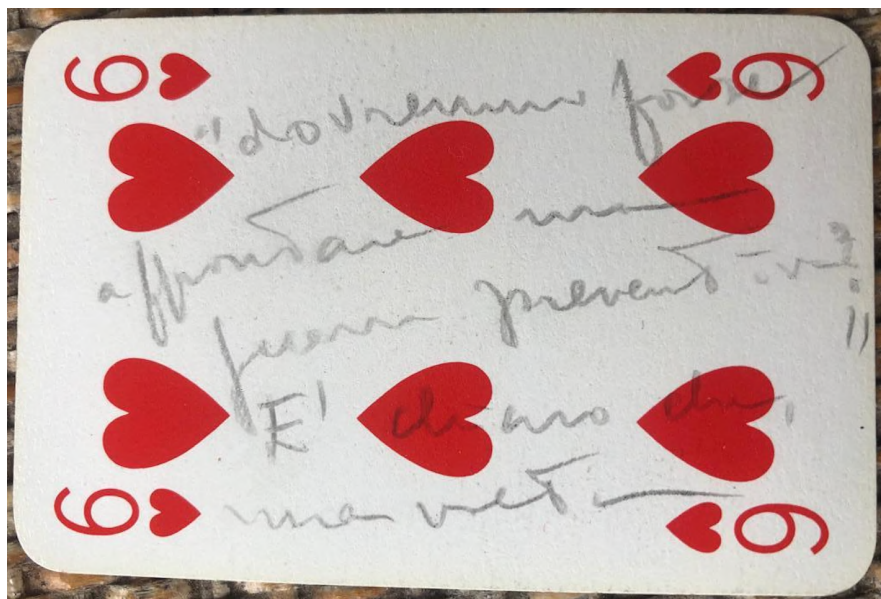 6 6
"dovremmo forse
affrontare una
guerra preventiva?"
E' chiaro che,
una volta
6 6